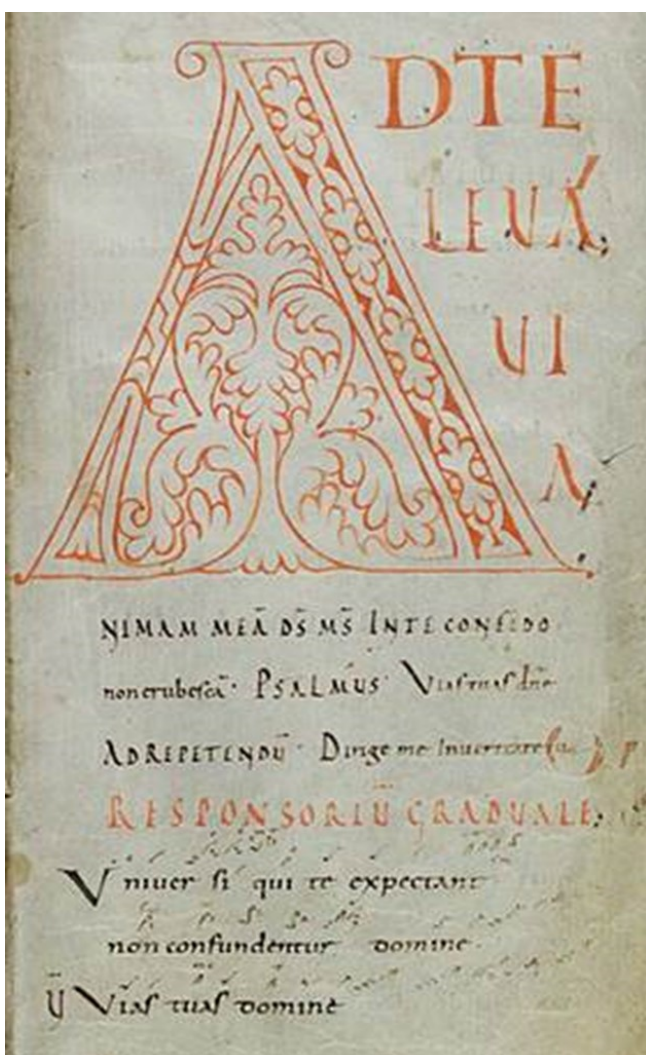 ADTE
LEUA
UI
A
NIMAM MEĀ DS̄ MS̄ INTE CONFIDO
non erubescā· PSALMUS Vias tuas dn̄e
AD REPETENDŪ· Dirige me In ueritate tua
RESPONSORIŪ GRADUALE
Vniuer si qui te expectant
non confundentur domine
V̄ Vias tuas domine